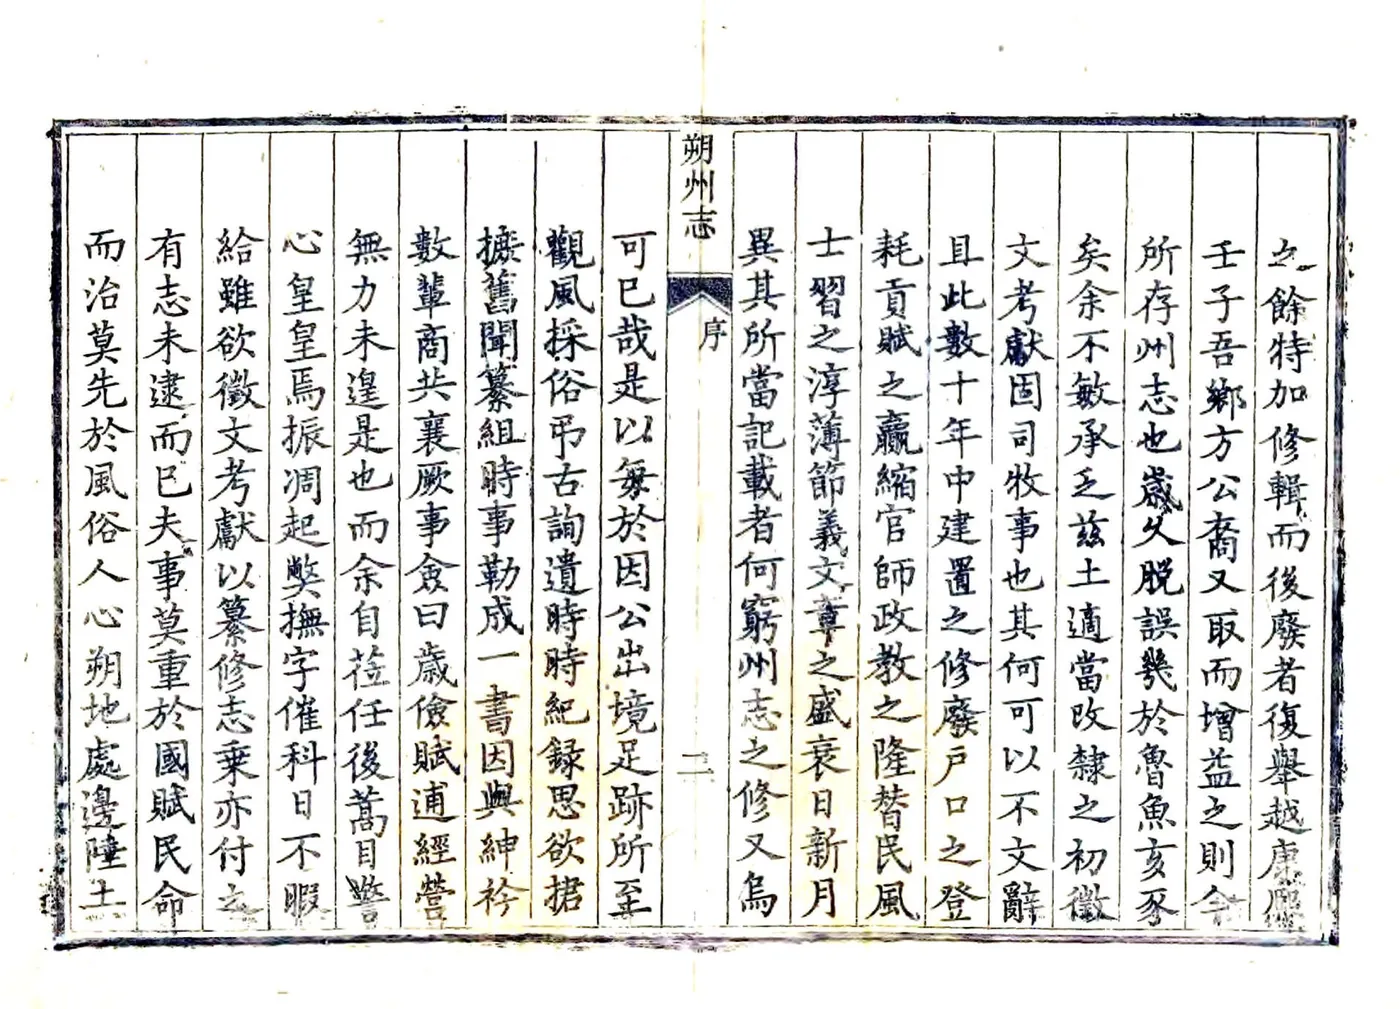 之餘特加修輯而後廢者復舉越康熙
壬子吾鄉方公裔又取而增益之則今
所存州志也歲久脫誤幾於魯魚亥豕
矣余不敏承乏茲土適當改隸之初徵
文考獻固司牧事也其何可以不文辭
且此數十年中建置之修廢戶口之登
耗貢賦之贏縮官師政教之隆替民風
士習之淳薄節義文章之盛衰日新月
異其所當記載者何窮州志之修又烏
朔州志
序
二
可已哉是以每於因公出境足跡所至
觀風採俗弔古詢遺時時紀錄思欲捃
摭舊聞纂組時事勒成一書因與紳衿
數輩商共襄厥事僉曰歲儉賦逋經營
無力未遑是也而余自莅任後蒿目警
心皇皇焉振凋起弊撫字催科日不暇
給雖欲徵文考獻以纂修志乘亦付之
有志未逮而已夫事莫重於國賦民命
而治莫先於風俗人心朔地處邊陲土